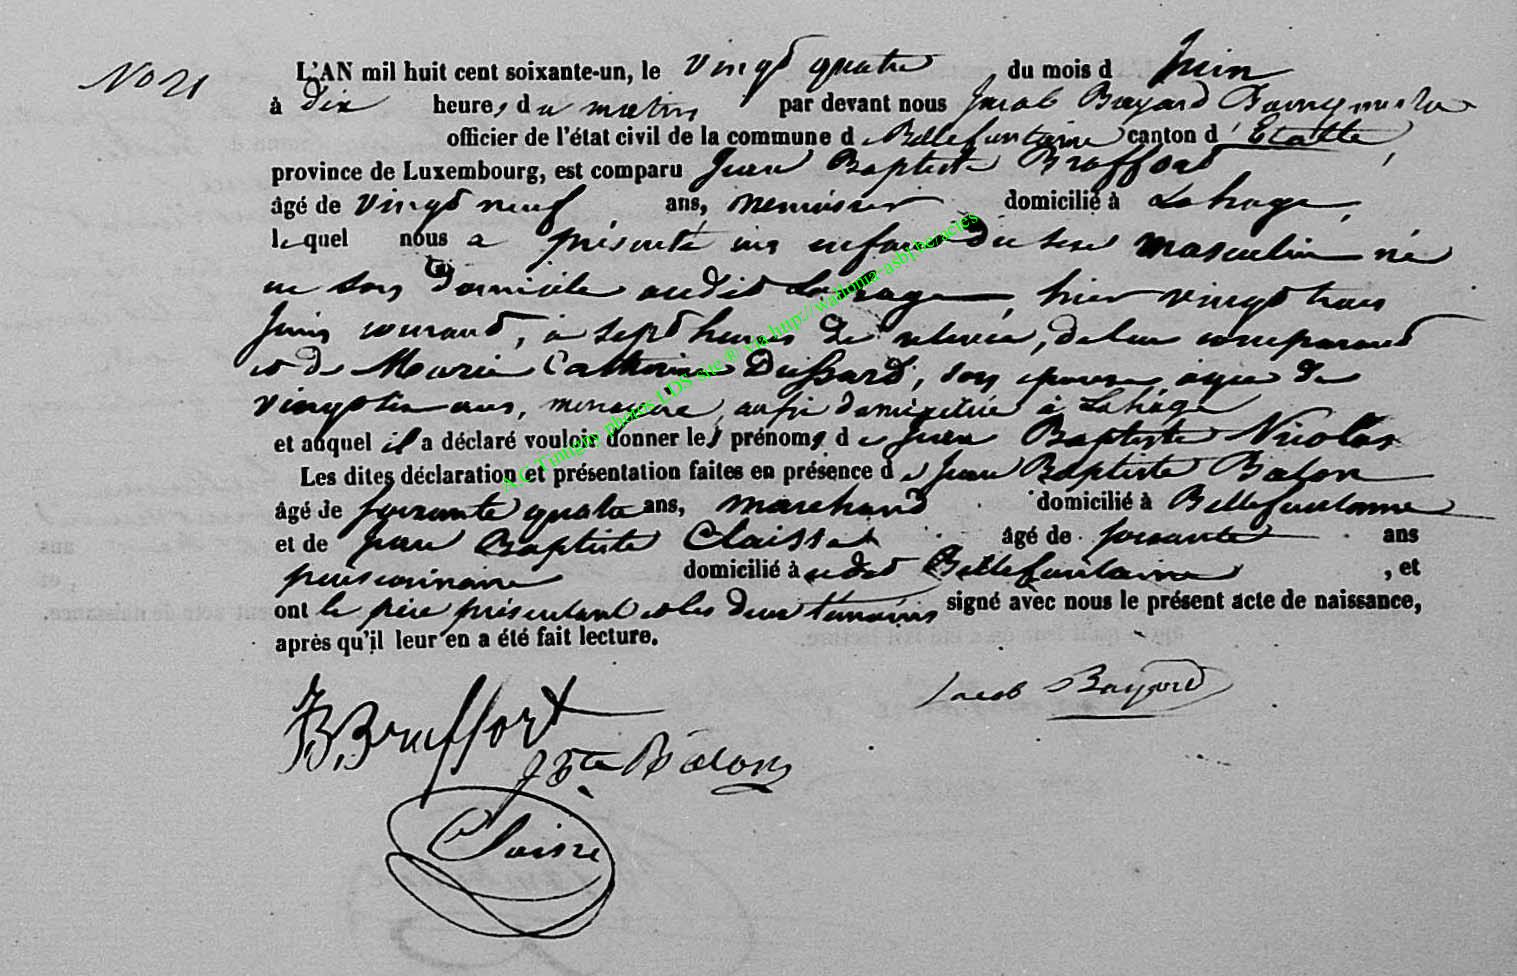 No 21
L'AN mil huit cent soixante-un, le vingt quatre du mois d Juin
à dix heures du matin par devant nous Jacob Bayard Bourgmestre
officier de l'état civil de la commune de Bellefontaine canton d'Etalle,
province de Luxembourg, est comparu Jean Baptiste Braffort
âgé de vingt neuf ans, menuisier domicilié à Lahage,
lequel nous a présenté un enfant du sexe masculin né
en son domicile audit Lahage, hier vingt trois
Juin courant, à sept heures de relevée, de lui comparant
et de Marie Catherine Dussard, son épouse, agée de
ans, menagère, aussi domiciliée à Lahage
et auquel il a déclaré vouloir donner les prénoms de Jean Baptiste Nicolas
Les dites déclaration et présentation faites en présence de Jean Baptiste Balon
âgé de soixante quatre ans, marchand domicilié à Bellefontaine
et de Jean Baptiste Claisse âgé de soixante ans
pensionnaire domicilié à udit Bellefontaine, et
ont le père présentant et les deux témoins signé avec nous le présent acte de naissance,
après qu'il leur en a été fait lecture.
Jacob Bayard
JB Braffort
J Bte Balon
Claisse
A.C Tintigny photos LDS site ® via http://wallonia-asbl.be/actes